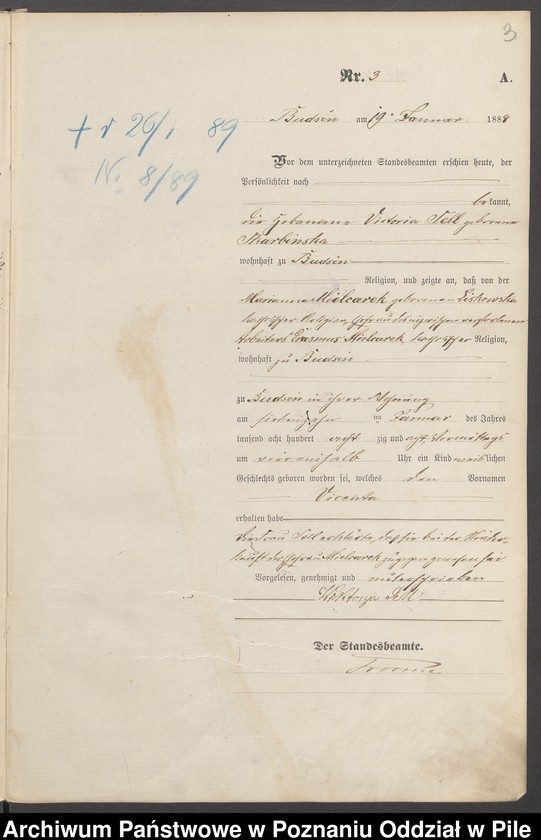 3
Nr. 3
A.
Budsin am 19. Januar 1888
Vor dem unterzeichneten Standesbeamten erschien heute, der
Persönlichkeit nach
bekannt,
die Hebamme Victoria Tell geborene
Skarbinska
wohnhaft zu Budsin
Religion, und zeigte an, daß von der
Marianna Mielcarek geborenen Liskowska
katholischer Religion, Ehefrau des verstorbenen
Arbeiters Erasmus Mielcarek, katholischer Religion,
wohnhaft zu Budsin
zu Budsin in ihrer Wohnung
am siebenzehn ten Januar des Jahres
tausend acht hundert acht zig und acht Vormittags
um vier einhalb Uhr ein Kind weiblichen
Geschlechts geboren worden sei, welches den Vornamen
Vicenta
erhalten habe
Die Frau Tell erklärte, daß sie bei der Nieder-
kunft der Ehefrau Mielcarek zugegen gewesen sei
Vorgelesen, genehmigt und unterschrieben
Wiktorya Tell
Der Standesbeamte.
+ d 26/1 89
No 8/89
Archiwum Państwowe w Poznaniu Oddział w Pile